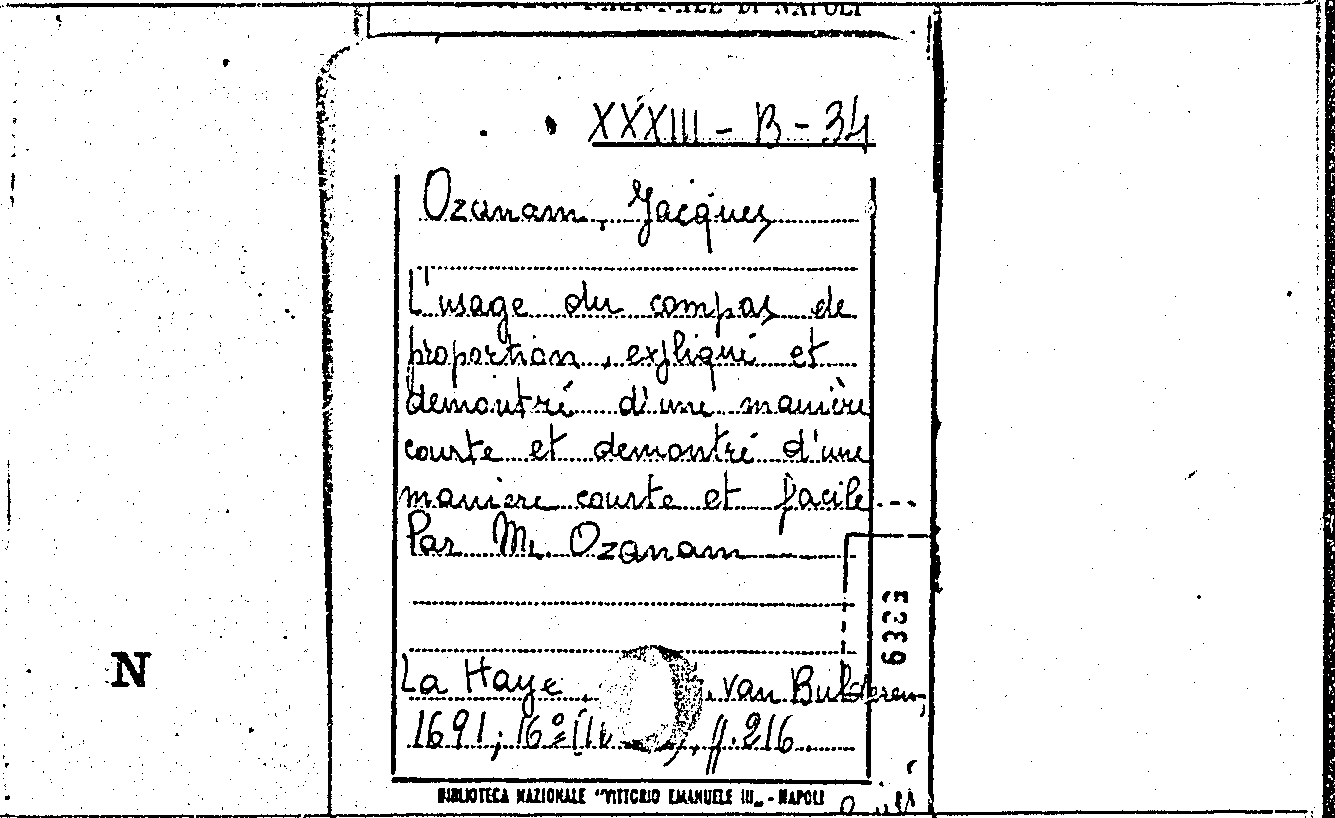 NAZIONALE DI NAPOLI
XXXIII - B - 34
Ozanam, Jacques
L'usage du compas de
proportion, expliqué et
demontré d'une manière
courte et demontré d'une
maniere courte et facile...
Par Mr. Ozanam
La Haye, van Bulderen,
1691; 16º f. 216
N
BIBLIOTECA NAZIONALE "VITTORIO EMANUELE III" - NAPOLI